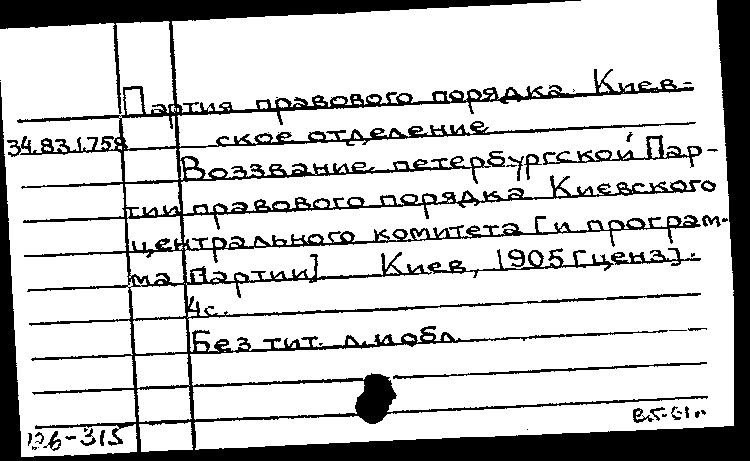 Партия правового порядка. Киев=
ское отделение
34.83.1.758
Воззвание петербургской Пар-
тии правового порядка Киевского
центрального комитета [и програм-
ма Партии] Киев, 1905 [ценз].
4 с.
Без тит. л. и обл.
126-315